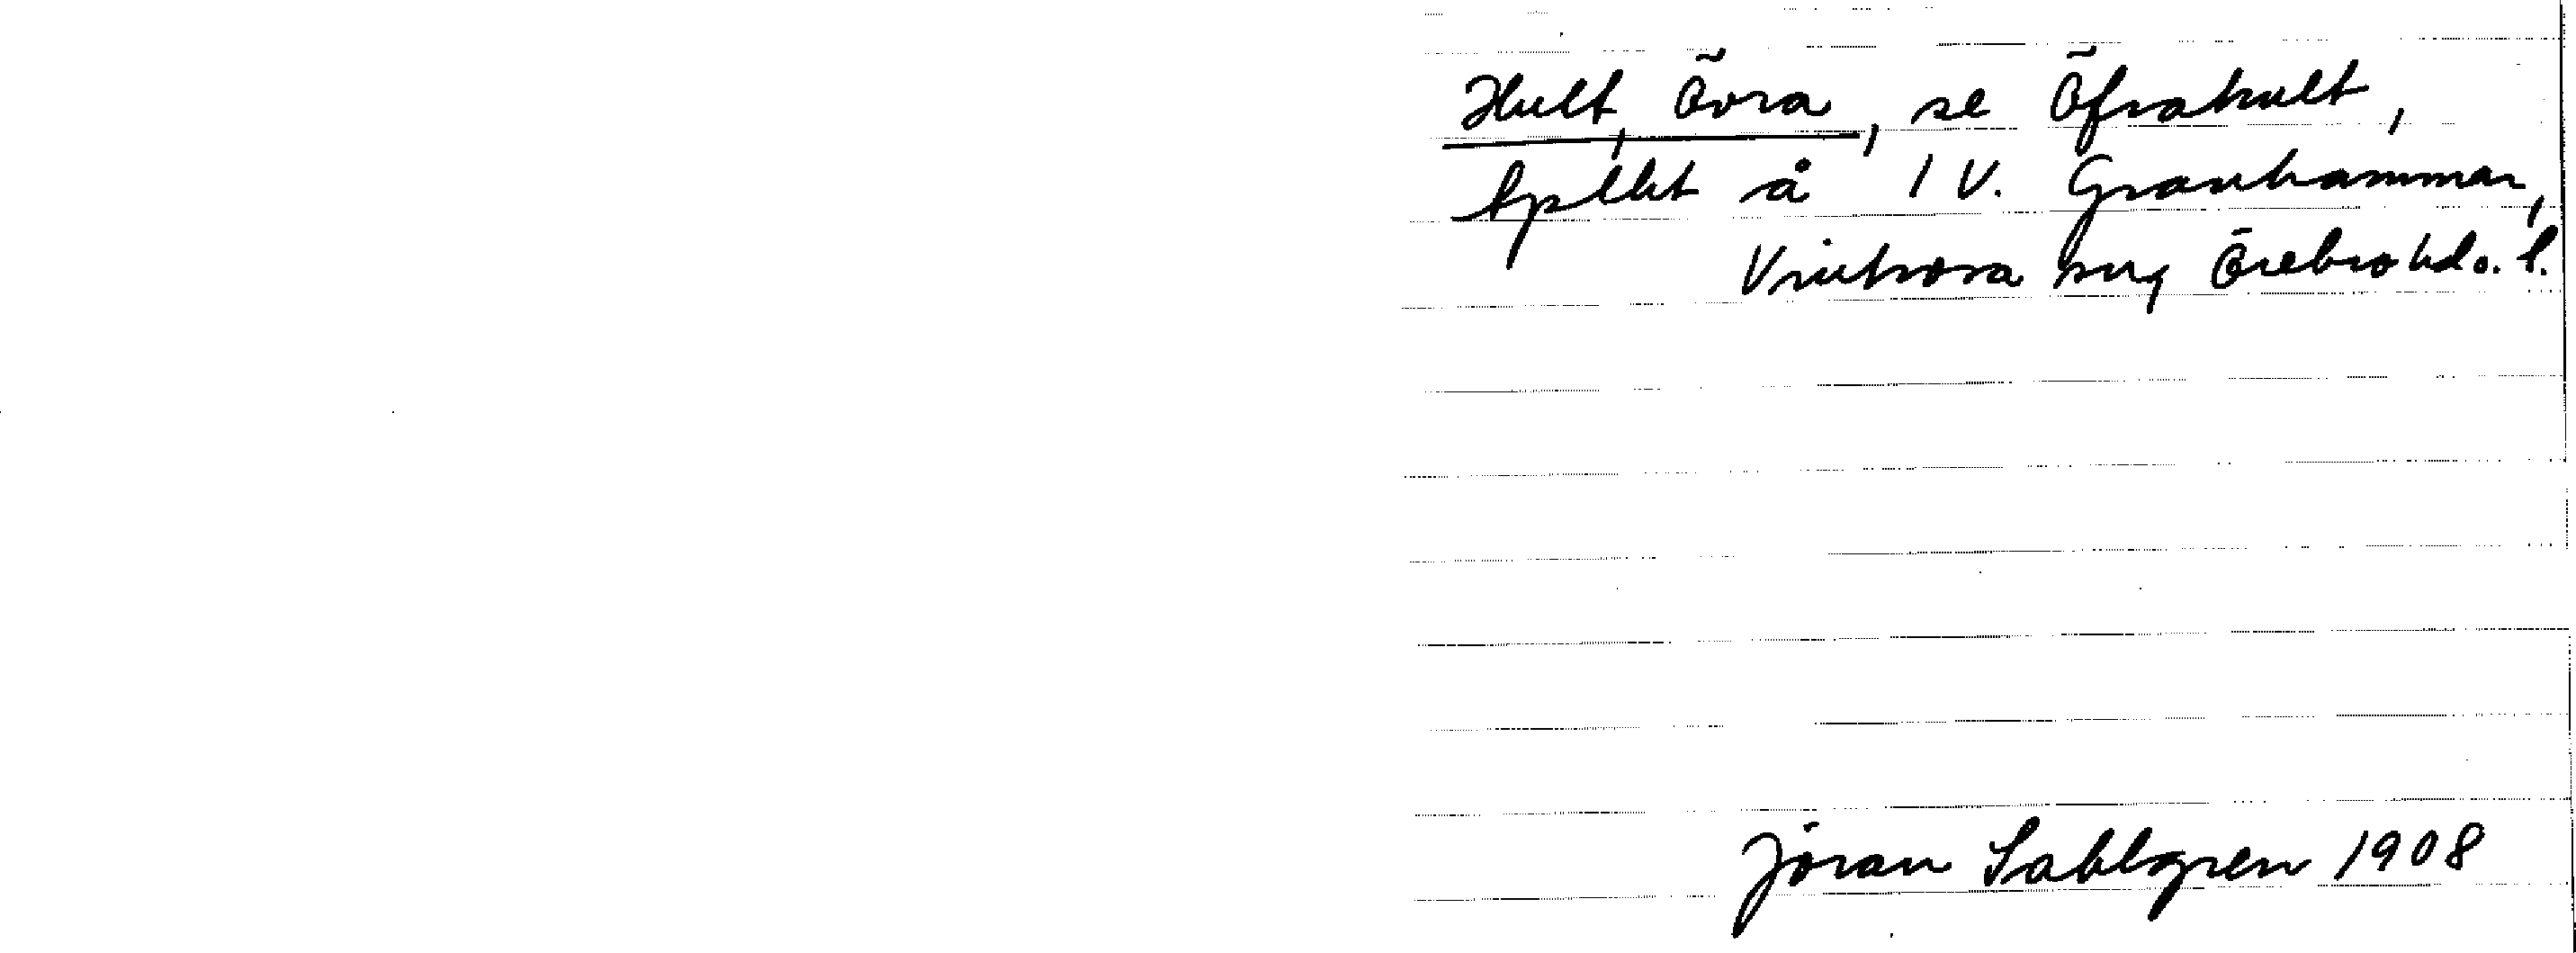 Hult, Övra, se Öfrahult,
tpltet å 1 V. Granhammar,
Vintrosa sng Örebro hd o. l.
Jöran Sahlgren 1908